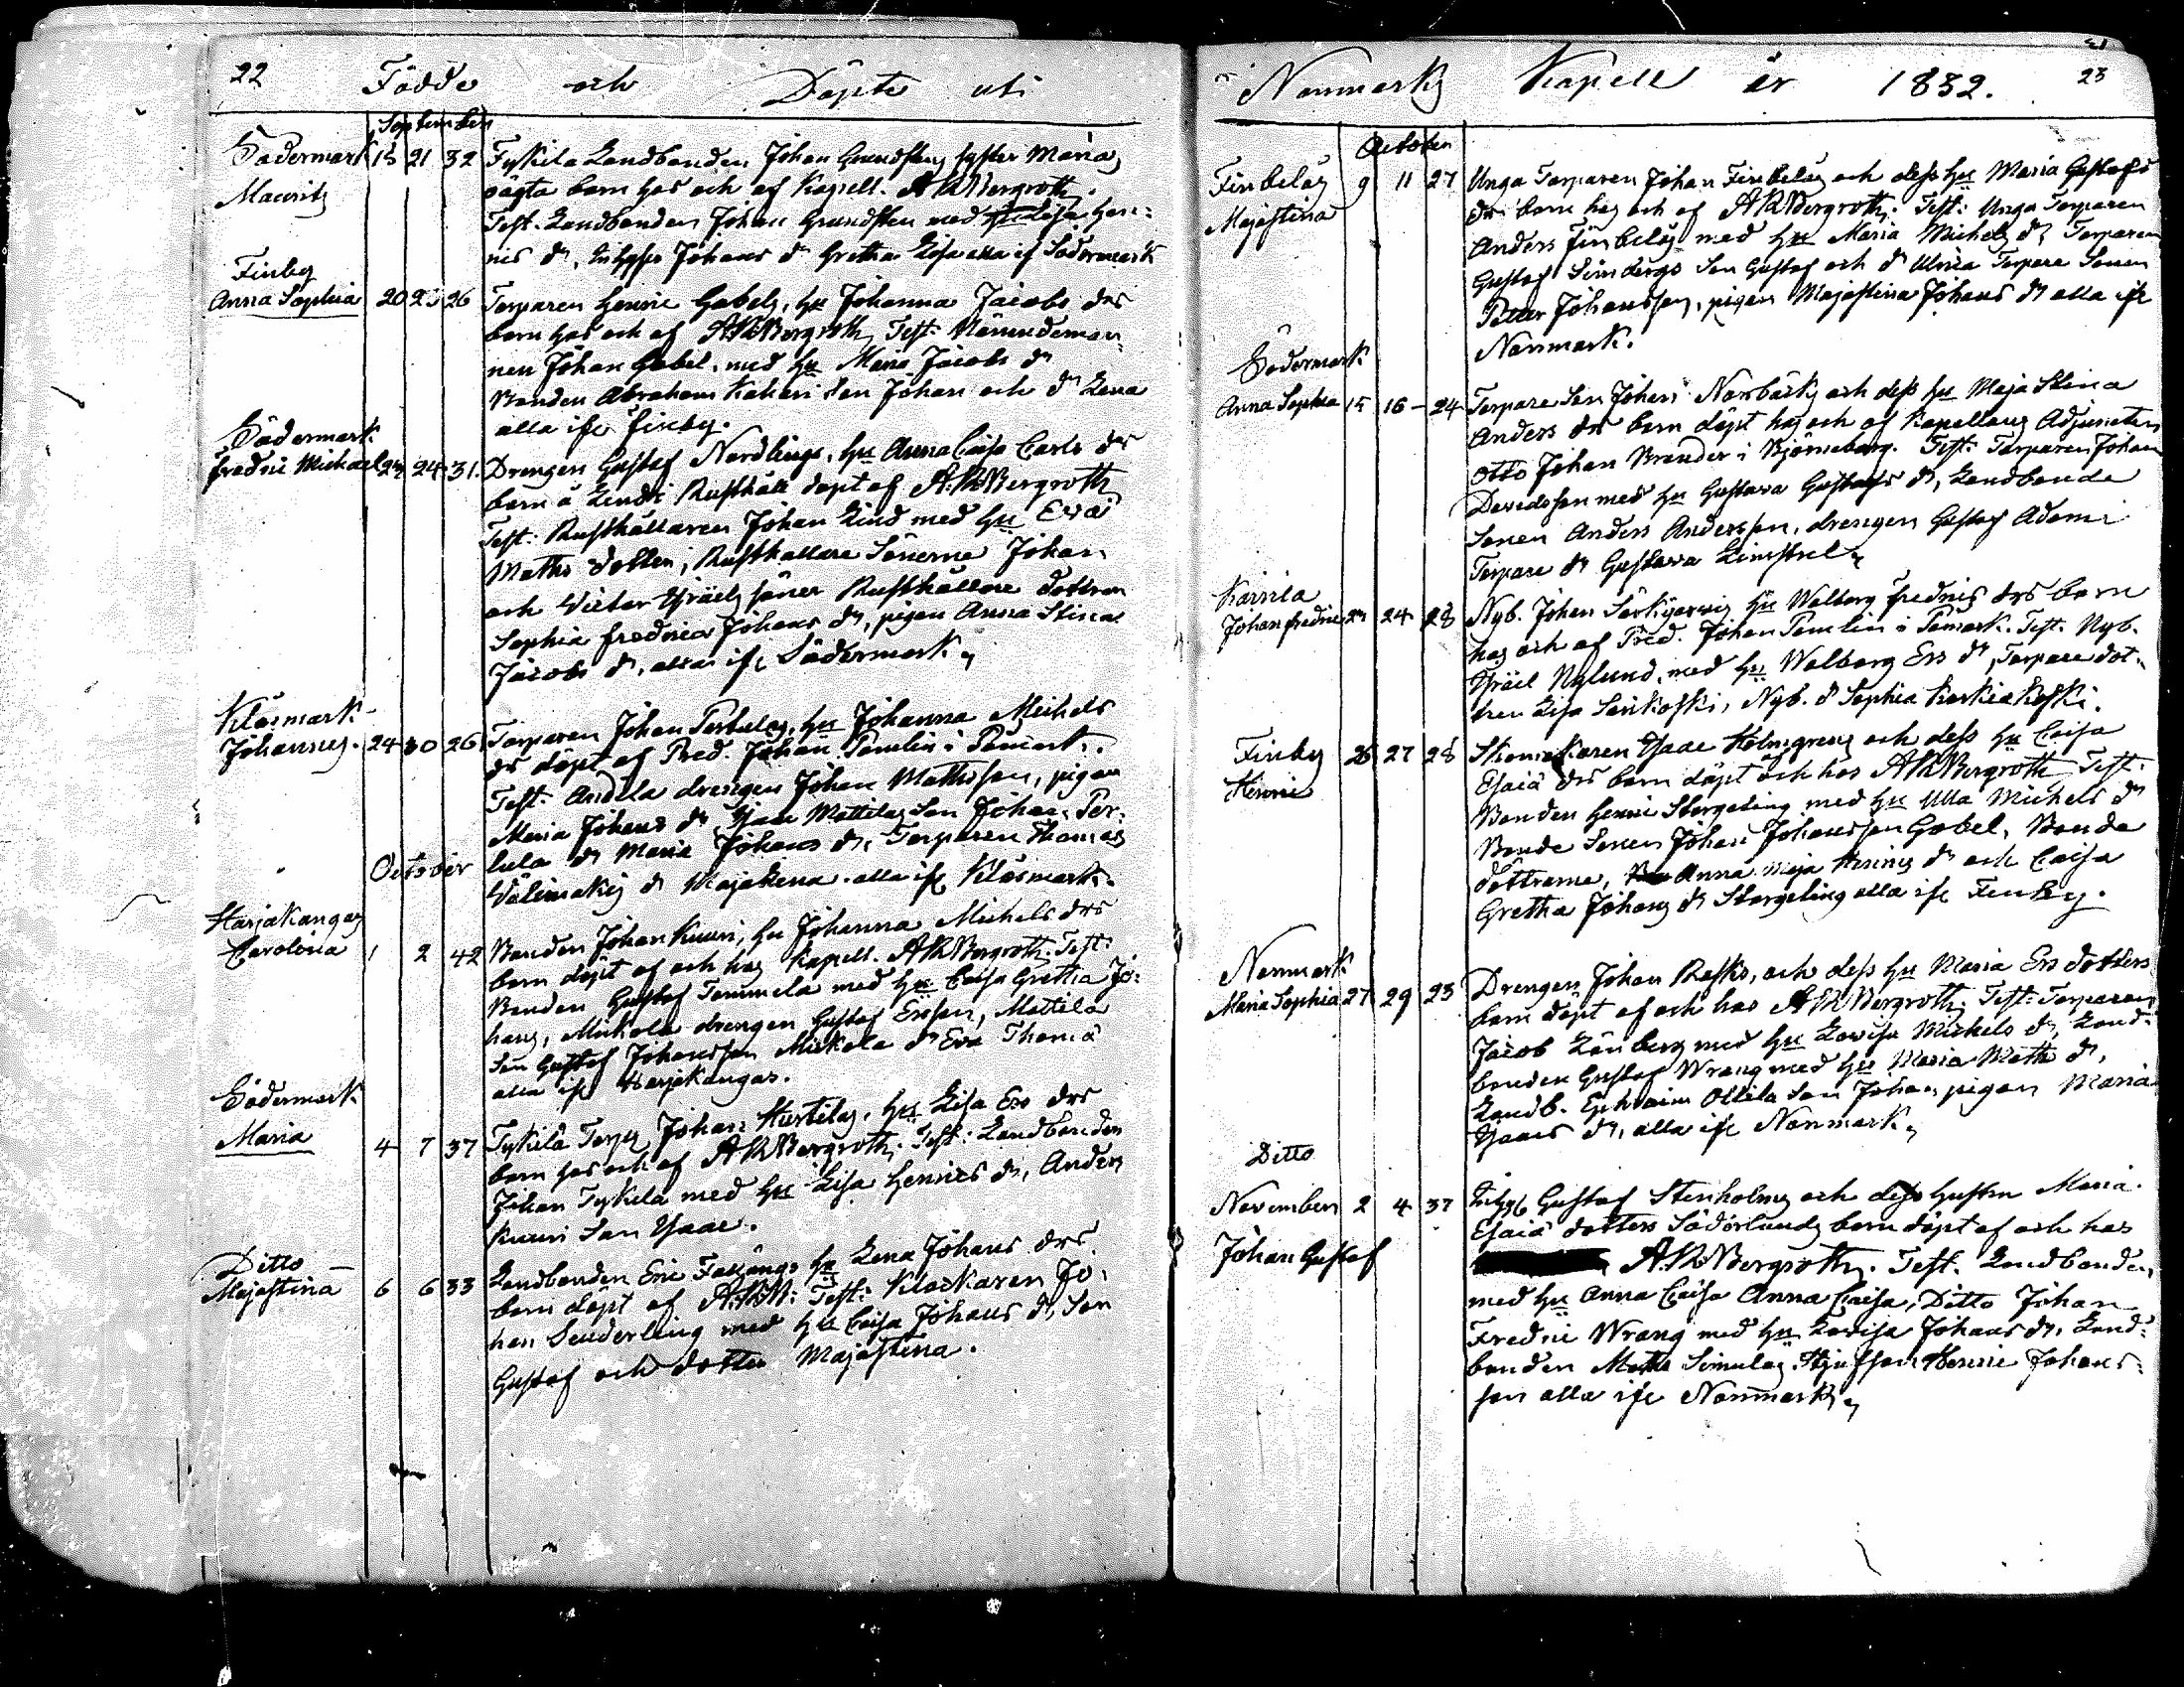 22 Födde och Döpte uti
September
Södermark 15 21 32 Tykila Landbonden Johan Grundstens syster Marias
Mauritz oägta barn hos och af Kapell. A R Bergroth.
Test. Landbonden Johan Grundsten med hu Lisa Hen-
ris dr, Johans dr Gretha Lisa alla if Södermark
Finby
Anna Sophia 20 26 Torparen Henric Gabels, hu Johanna Jacobs drs
barn hos och af A R Bergroth Test. Nämndeman-
nen Johan Gabel, med hu Maria Jacobs dr
Bonden Abraham son Johan och dr Lena
alla ifr Finby.
Södermark
Fredric Michael 24 31. Drengen Gustaf Nordlings, hu Anna Caisa Carls drs
barn å Rusthåll döpt af A. R. Bergroth
Test: Rusthållaren Johan Lind med hu Eva
Maths dotter, Rusthållare Sönerne Johan
och Victor söner Rusthållare dottren
Sophia Fredrica Johans dr, pigan Anna Stina
Jacobs dr, alla ifr Södermark
Klåsmark
Johannes. 24 30 26 Torparen Johan Perhulas, hu Johanna Michels
dr döpt af Pred. Johan Tamelin i Påmark.
Test. Andila drengen Johan Mathsson, pigan
Maria Johans dr Isaac Mattilas Son Johan, Per-
hula dr Maria Johans dr, Torparen Thomas
Välimäkis dr Maja Lena. alla ifr Klåsmark.
October
Harjakangas
Carolina 1 2 42 Bonden Johan Knuuri, hu Johanna Michels drs
barn döpt af och hos Kapell. A R Bergroth. Test:
Bonden Gustaf Tommela med hu Caisa Gretha Jo-
hans, Mickola drengen Gustaf Ersson, Mattila
Son Gustaf Johansson Mickola dr Eva Thoma
alla ifr Harjakangas.
Södermark
Maria 4 7 37 Tykilä Johan Hurtilas, hu Lisa Ers drs
barn hos och af A R Bergroth. Test: Landbonden
Johan Tykilä med hu Lisa Henrics dr, Anders
Knuuri Son Isaac.
Ditto
Majastina 6 6 33 Landbonden Eric hu Lena Johans drs
barn döpt af A.R.B: Test: Klockaren Jo-
han Senderling med hu Caisa Johans dr, Son
Gustaf och dotter Majastina.
Norrmarks Kapell år 1832. 23
October
Finbelas 9 11 27 Unga Torparen Johan Finbelas och dess hu Maria Gustafs
Majastina drs barn hos och af A R Bergroth. Test: Unga Torparen
Anders Finbelas med hu Maria Michels dr, Torparen
Gustaf Simbergs Son Gustaf och dr Ulrica Torpare Sonen
Petter Johansson, pigan Majastina Johans dr alla ifr
Norrmark.
Södermark
Anna Sophia 15 16 - 24 Torpare Son Johan Norrbacks och dess hu Maja Stina
Anders drs barn döpt hos och af Kapellans Adjuncten
Otto Johan Brander i Björneborg. Test. Torparen Johan
Davidsson med hu Gustava Gustafs dr, Landbonde
Sonen Anders Andersson, drengen Gustaf Adami
Torpare dr Gustava
Kärrila
Johan Fredric 23 24 28 Nyb. Johan hu Walborg Fredrics drs barn
hos och af Pred. Johan Tamelin i Påmark. Test. Nyb.
Israel Nylund, med hu Walborg Ers dr, Torpare dot-
tren Lisa Nyb. dr Sophia
Finby 26 27 28 Skomakaren Isaac Holmgrens och dess hu Caisa
Henric Esaia drs barn döpt och hos A R Bergroth Test.
Bonden Henric Storgeling med hu Ulla Michels dr
Bonde Sonen Johan Johansson Gabel, Bonde
döttrarne, Anna Maja Henrics dr och Caisa
Gretha Johans dr Storgeling alla ifr Finby.
Norrmark
Maria Sophia 27 29 23 Drengen Johan Rasks, och dess hu Maria Ers dotters
barn döpt af och hos A R Bergroth. Test: Torparen
Jacob Lönberg med hu Lovisa Michels dr, Land-
bonden Gustaf Wrang med hu Maria Maths dr,
Landb. Ephraim Ollila Son Johan, pigan Maria
Isaacs dr, alla ifr Norrmark
Ditto
November 2 4 37 Gustaf Stenholms och dess hustru Maria
Johan Gustaf Esaiä dotters Söderlunds barn döpt af och hos
A. R. Bergroth. Test. Landbonden,
med hu Anna Caisa Anna Caisa, Ditto Johan
Fredric Wrang med hu Lovisa Johans dr, Land-
bonden Maths Simulas Henric Johans-
son alla ifr Norrmark